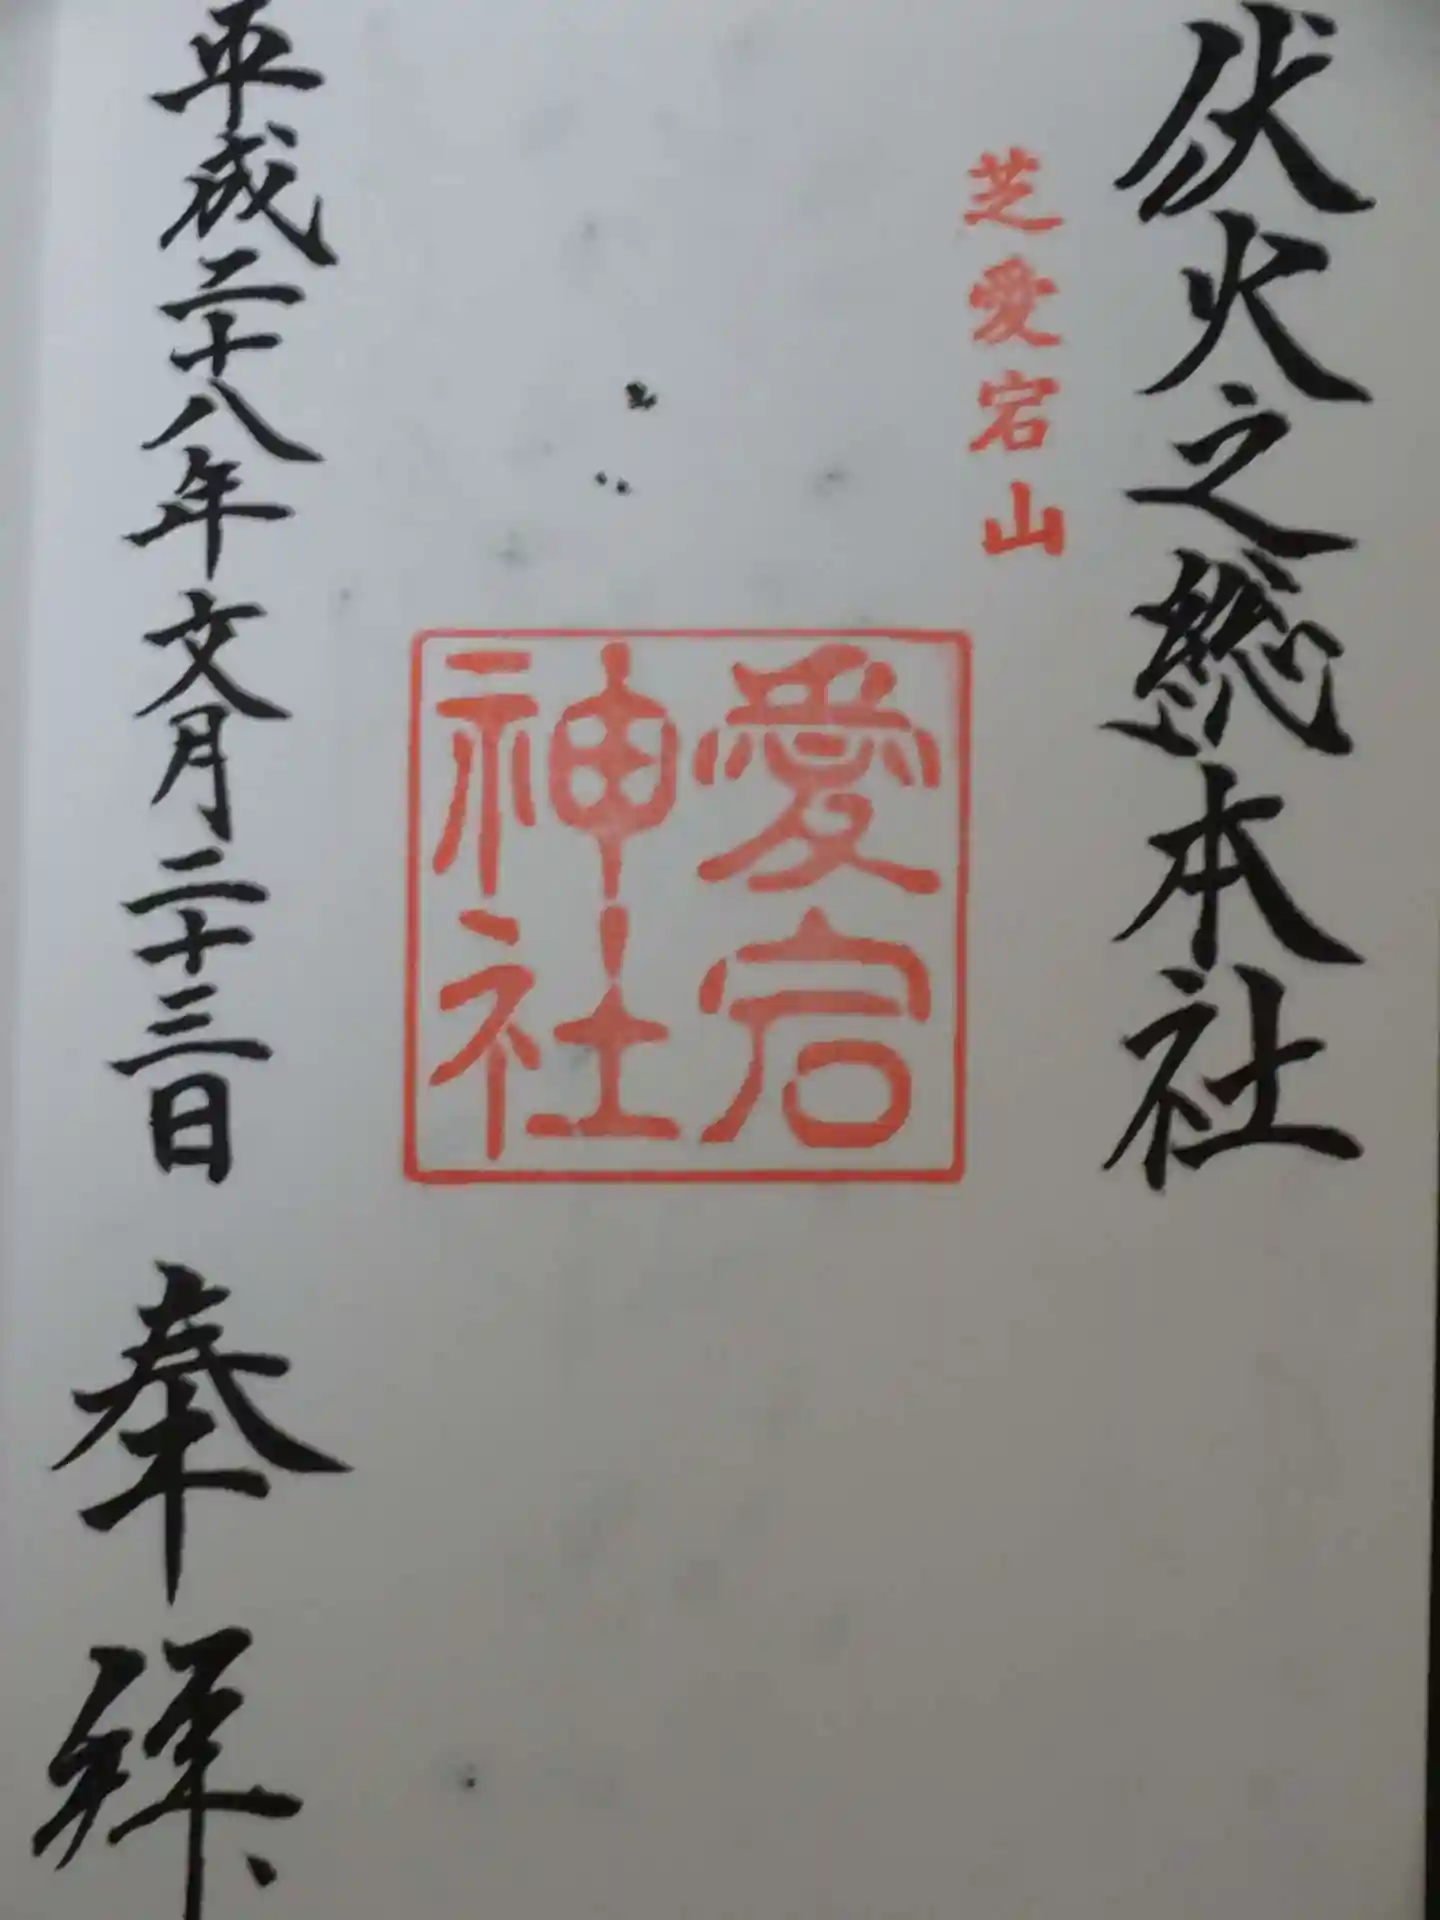 伏火之総本社
芝愛宕山
愛宕
神社
平成二十八年文月二十三日 奉拝